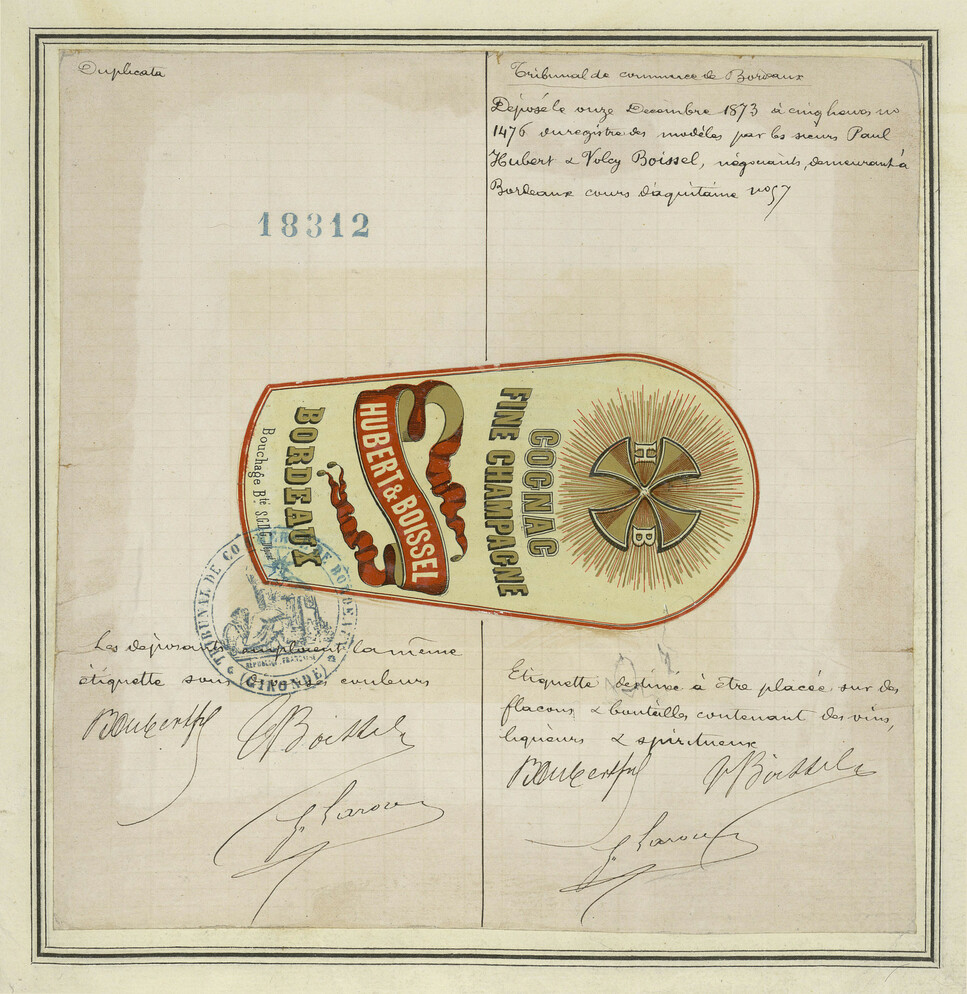 Duplicata
Tribunal de commerce de Bordeaux
Déposé le onze Decembre 1873 à cinq heures no
1476 du registre des modèles par les sieurs Paul
Hubert & Volcy Boissel, négociants, demeurant à
Bordeaux cours d'aquitaine no 57
18312
H
B
COGNAC
FINE CHAMPAGNE
HUBERT & BOISSEL
BORDEAUX
Bouchage Bté S.G.D.G.
TRIBUNAL DE COMMERCE DE BORDEAUX
REPUBLIQUE FRANÇAISE
(GIRONDE)
Les déposants emploient la même
étiquette sous couleurs
P Hubert fils
V Boissel
Etiquette destinée à être placée sur des
flacons & bouteilles contenant des vins,
liqueurs & spiritueux
P Hubert fils
V Boissel